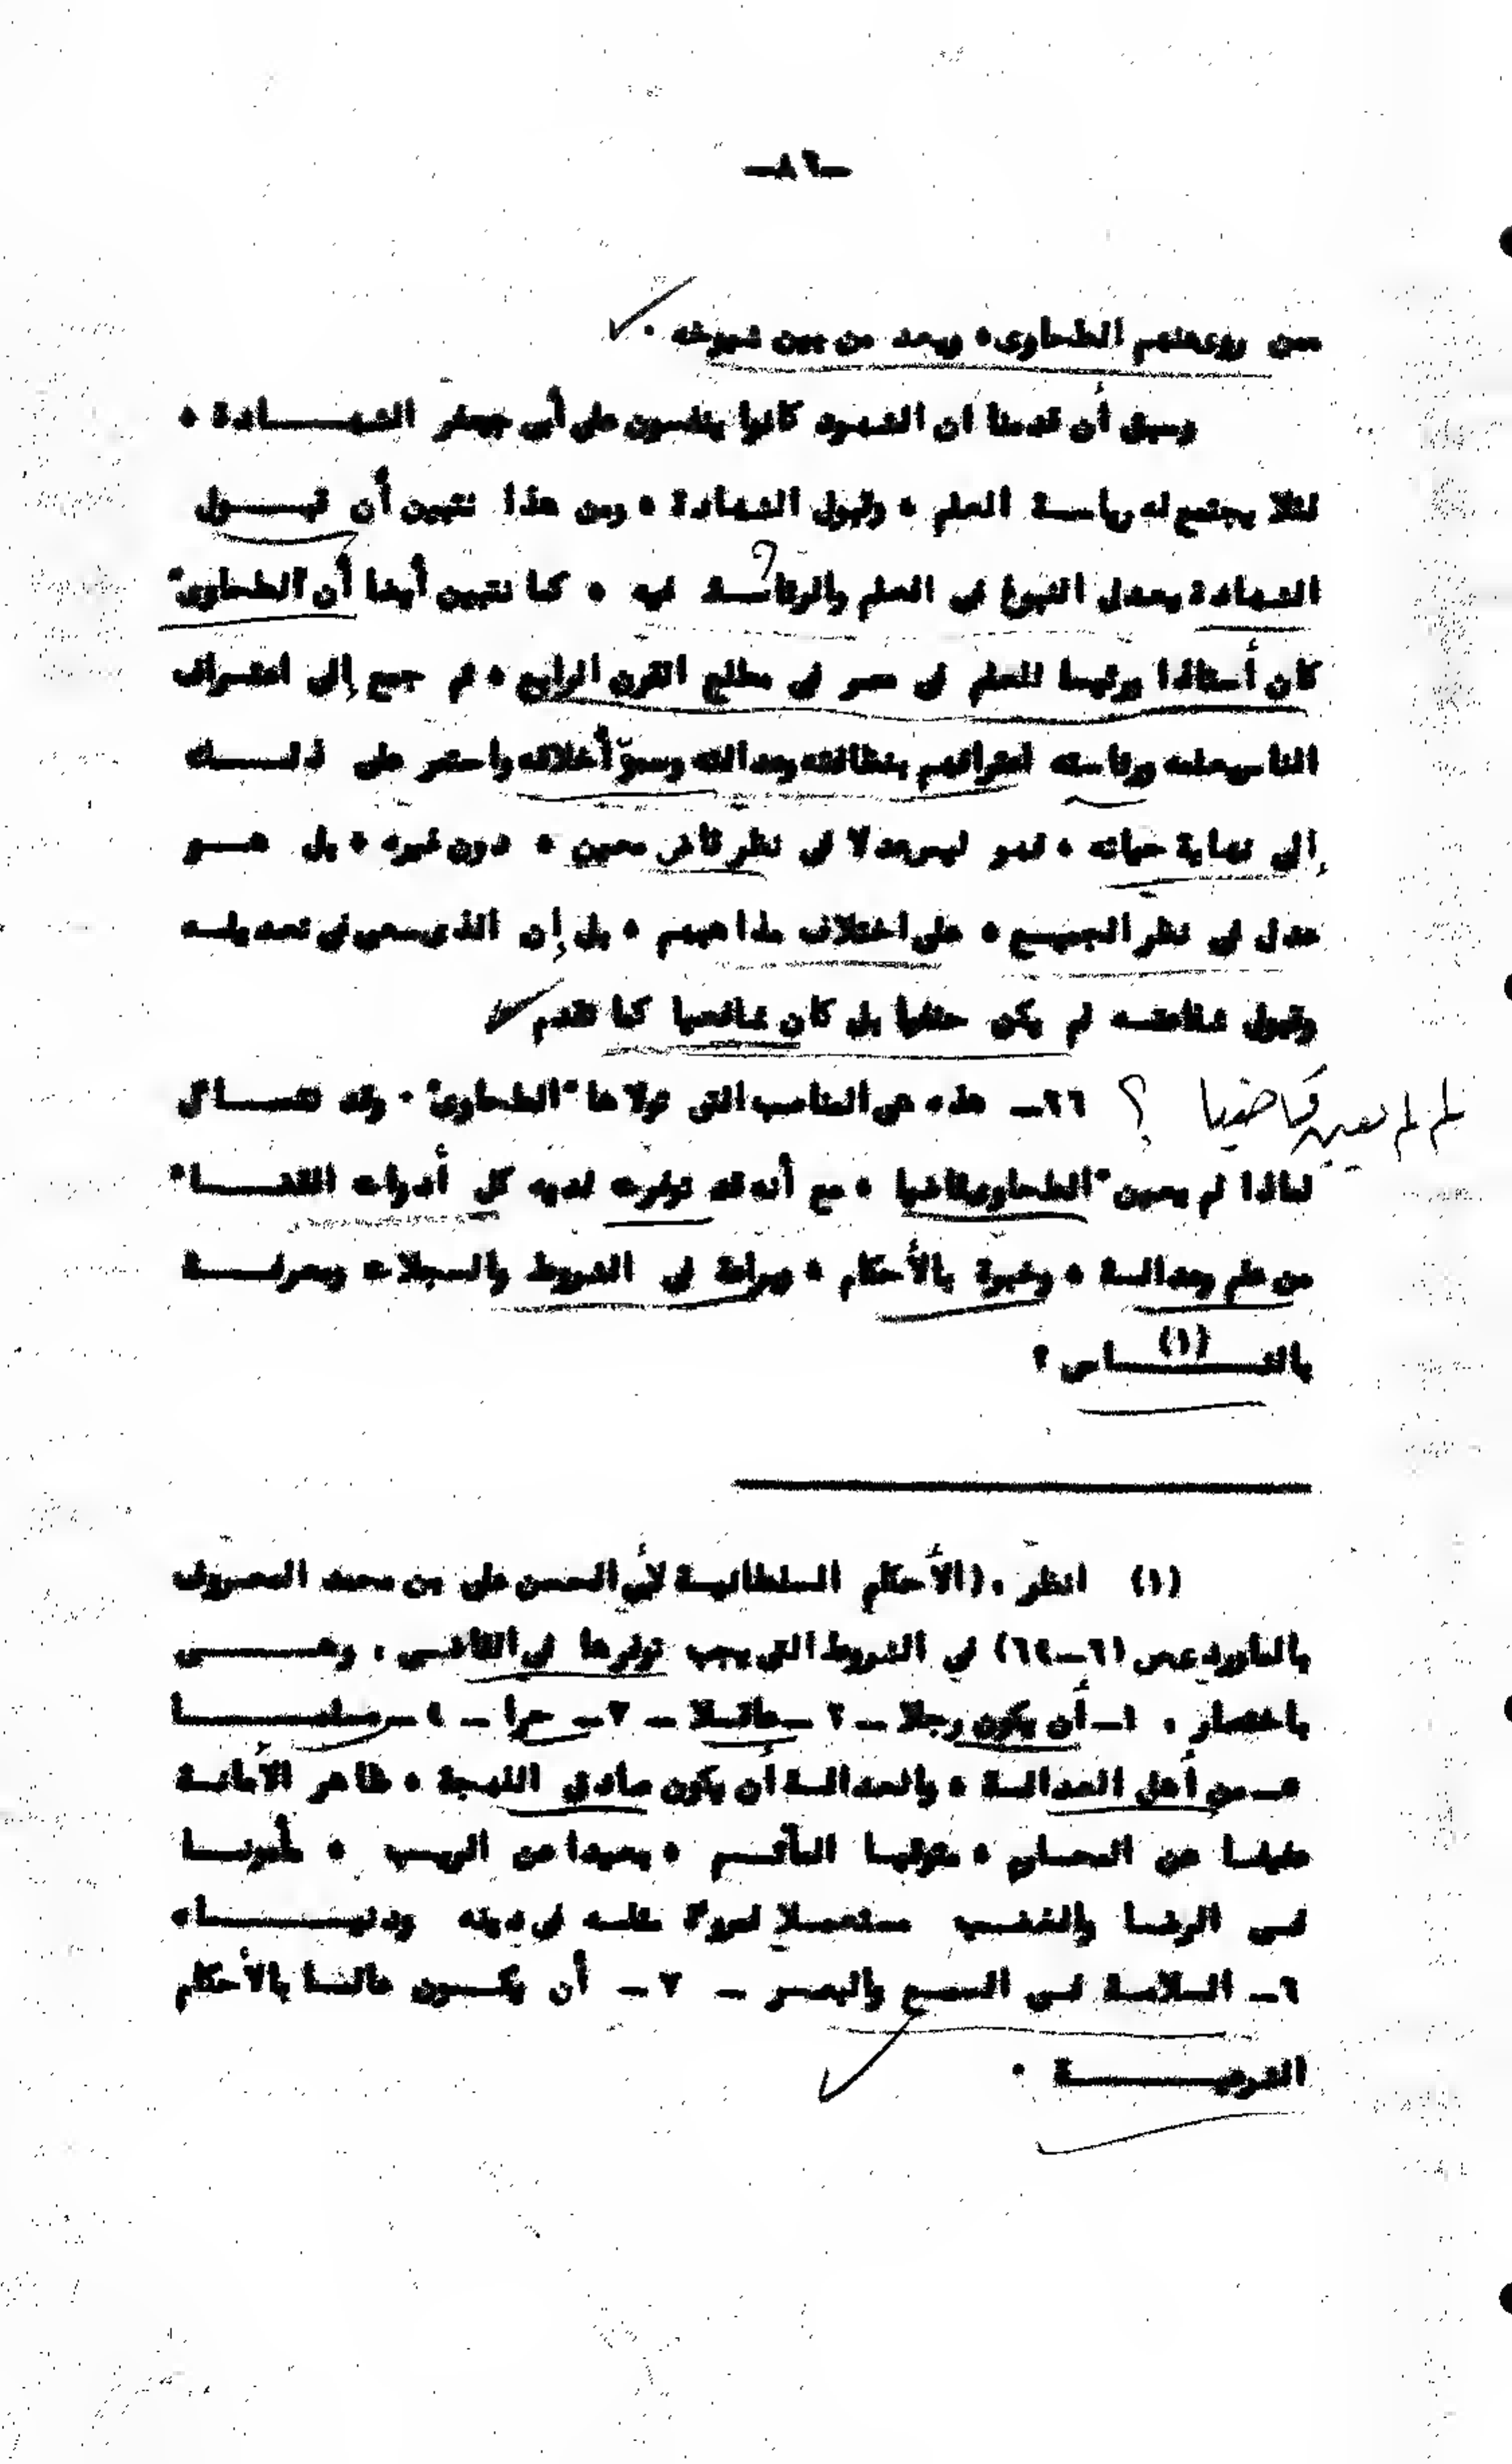 -٨٦-
ممن روى عنهم الطحاوى، ويعد من بين شيوخه ٠
وسبق أن قدمنا ان الشهود كانوا ينفسون على أبى جعفر الشهـــادة ،
لئلا يجتمع له رياسة العلم ، وقبول الشهادة ، ومن هذا نتبين أن قبـــول
الشهادة يعدل النبوغ فى العلم والرئاسة فيه ، كما نتبين أيضا أن "الطحاوى"
كان أستاذا ورئيسا للعلم فى مصر فى مطلع القرن الرابع ، ثم جمع إلى اعتراف
الناس بعلمه ورئاسته اعترافهم بنظافته وعدالته وسموّ أخلاقه واستمر على ذلـــك
إلى نهاية حياته ، فهو ليس عدلا فى نظر قاض معين ، دون غيره ، بل هـــو
عدل فى نظر الجميع ، على اختلاف مذاهبهم ، بل إن الذى سعى فى تعديله
وقبول شهادته لم يكن حنفيا بل كان شافعيا كما تقدم
٦٦- هذه هى المناصب التى تولاها "الطحاوى" ٠ وقد تتســاءل
لم لم يعين قاضيا ؟
لماذا لم يعين "الطحاوى" قاضيا ، مع أنه قد توفرت لديه كل أدوات القضـــاء
من علم وعدالة ، وخبرة بالأحكام ، وبراعة فى الشروط والسجلات ومعرفـــة
بالنـــاس (١) ؟
(١) انظر ٠ (الأحكام السلطانية لأبى الحسن على بن محمد المعروف
بالماوردى ص (٦١-٦٢) فى الشروط التى يجب توفرها فى القاضى ٠ وهـــى
باختصار ٠ ١- أن يكون رجلا - ٢ - عاقلا - ٣- حرا - ٤ - مسلمـــا
٥- من أهل العدالة ، والعدالة أن يكون صادق اللهجة ، ظاهر الأمانة
عفيفا عن المحارم ، متوقيا المآثم ، بعيدا عن الريب ، مأمونا
فى الرضا والغضب مستعملا لمروءة مثله فى دينه ودنيـــاه
٦- السلامة فى السمع والبصر - ٧- أن يكون عالما بالأحكام
الشرعيـــة ٠